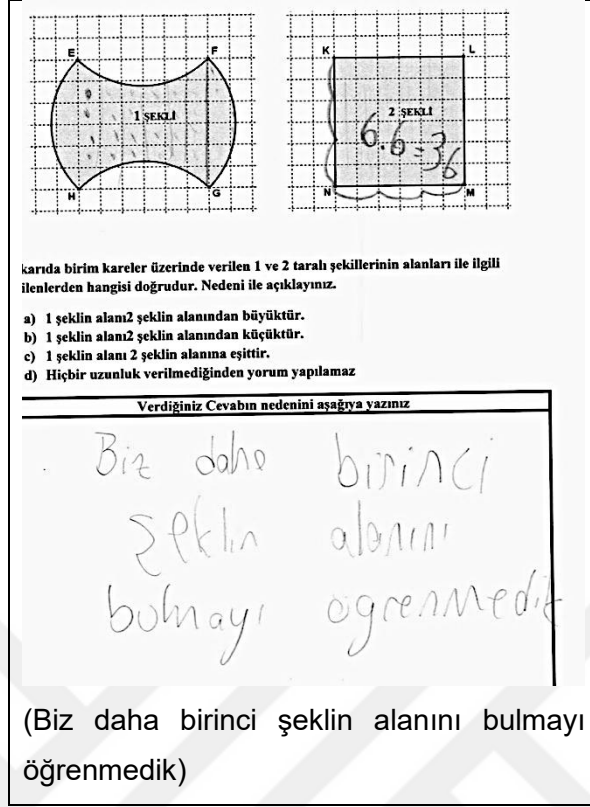 E F
1 ŞEKLİ
H G
K L
2 ŞEKLİ
6.6=36
N M
karıda birim kareler üzerinde verilen 1 ve 2 taralı şekillerinin alanları ile ilgili
ilenlerden hangisi doğrudur. Nedeni ile açıklayınız.
a) 1 şeklin alanı2 şeklin alanından büyüktür.
b) 1 şeklin alanı2 şeklin alanından küçüktür.
c) 1 şeklin alanı 2 şeklin alanına eşittir.
d) Hiçbir uzunluk verilmediğinden yorum yapılamaz
Verdiğiniz Cevabın nedenini aşağıya yazınız
Biz daha birinci
şeklin alanını
bulmayı öğrenmedik
(Biz daha birinci şeklin alanını bulmayı
öğrenmedik)